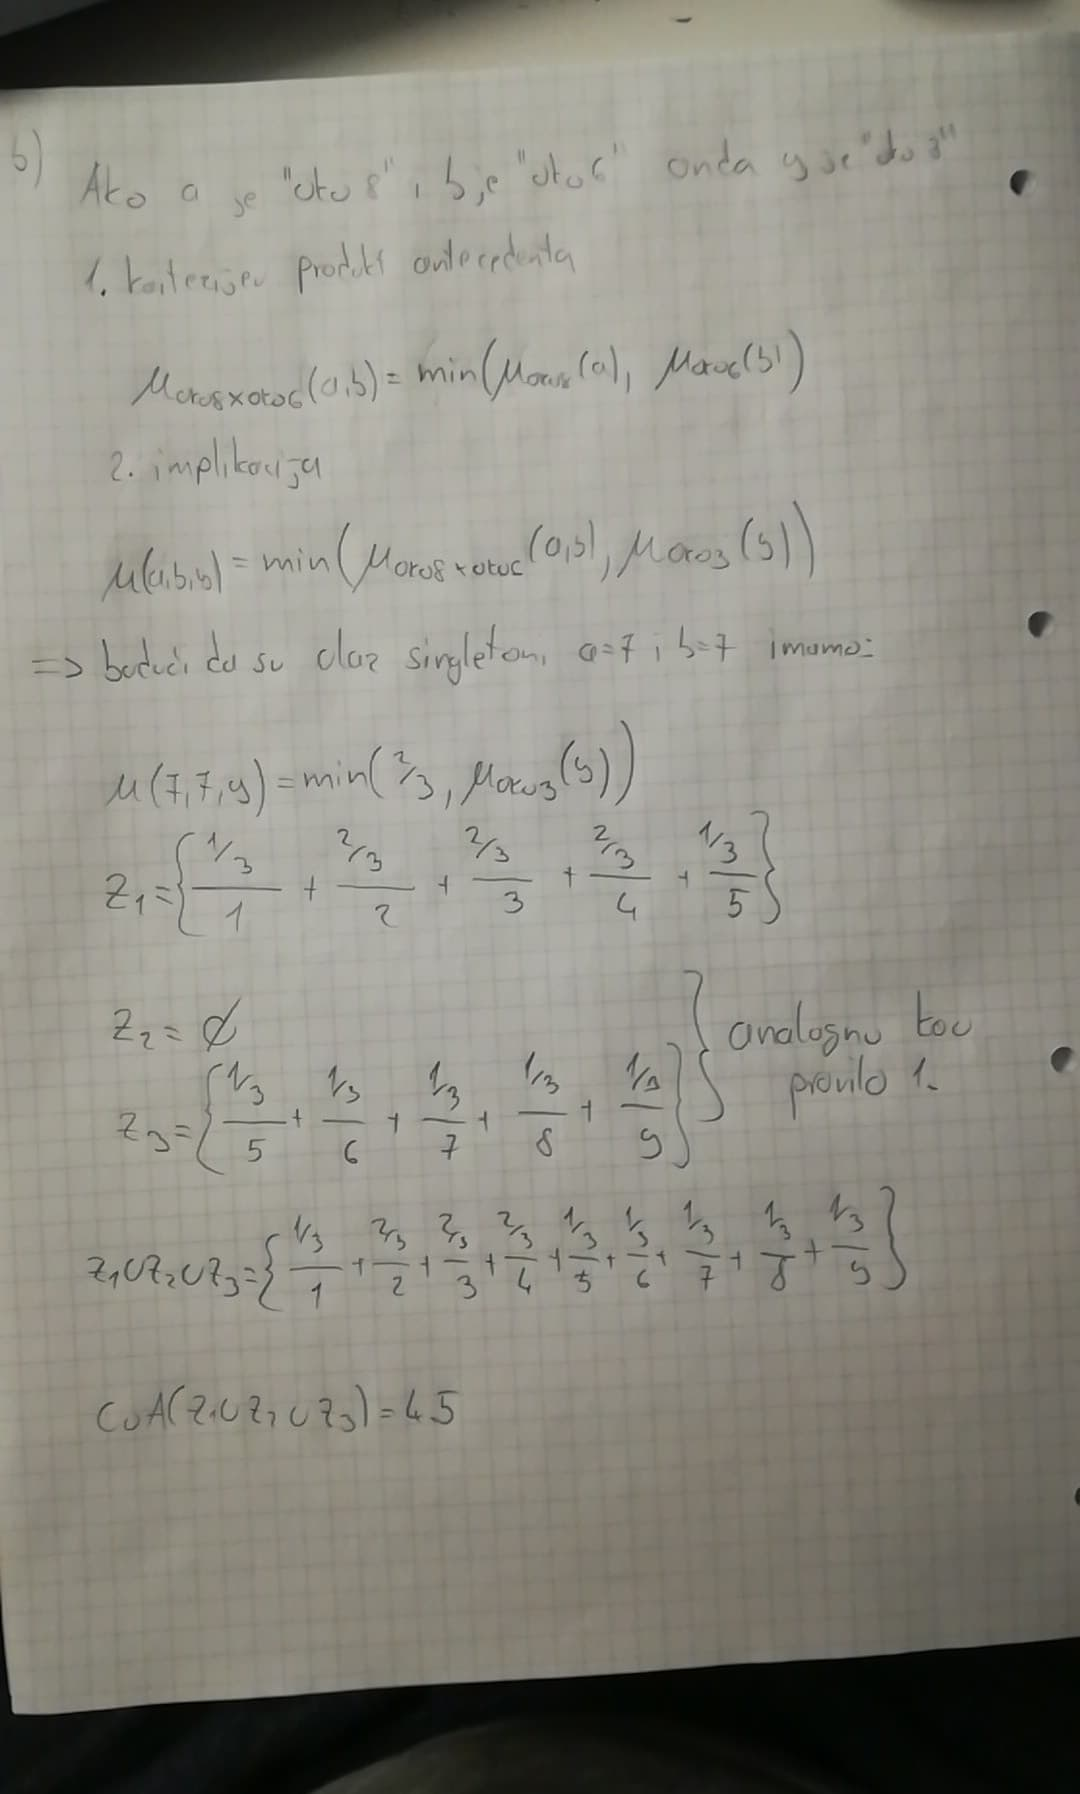 b) Ako a je "oko 8" i b je "oko 6" onda y je "oko 3"
1. kartezijev produkt antecedenta
μoko8×oko6(a,b) = min(μoko8(a), μoko6(b))
2. implikacija
μ(a,b,y) = min(μoko8×oko6(a,b), μoko3(y))
=> budući da su ulaz singletoni a=7 i b=7 imamo:
μ(7,7,y) = min(2/3, μoko3(y))
Z1 = { 1/3 / 1 + 2/3 / 2 + 2/3 / 3 + 2/3 / 4 + 1/3 / 5 }
Z2 = ∅
Z3 = { 1/3 / 5 + 1/3 / 6 + 1/3 / 7 + 1/3 / 8 + 1/3 / 9 } } analogno kao pravilo 1.
Z1∪Z2∪Z3 = { 1/3 / 1 + 2/3 / 2 + 2/3 / 3 + 2/3 / 4 + 1/3 / 5 + 1/3 / 6 + 1/3 / 7 + 1/3 / 8 + 1/3 / 9 }
CoA(Z1∪Z2∪Z3) = 4.5